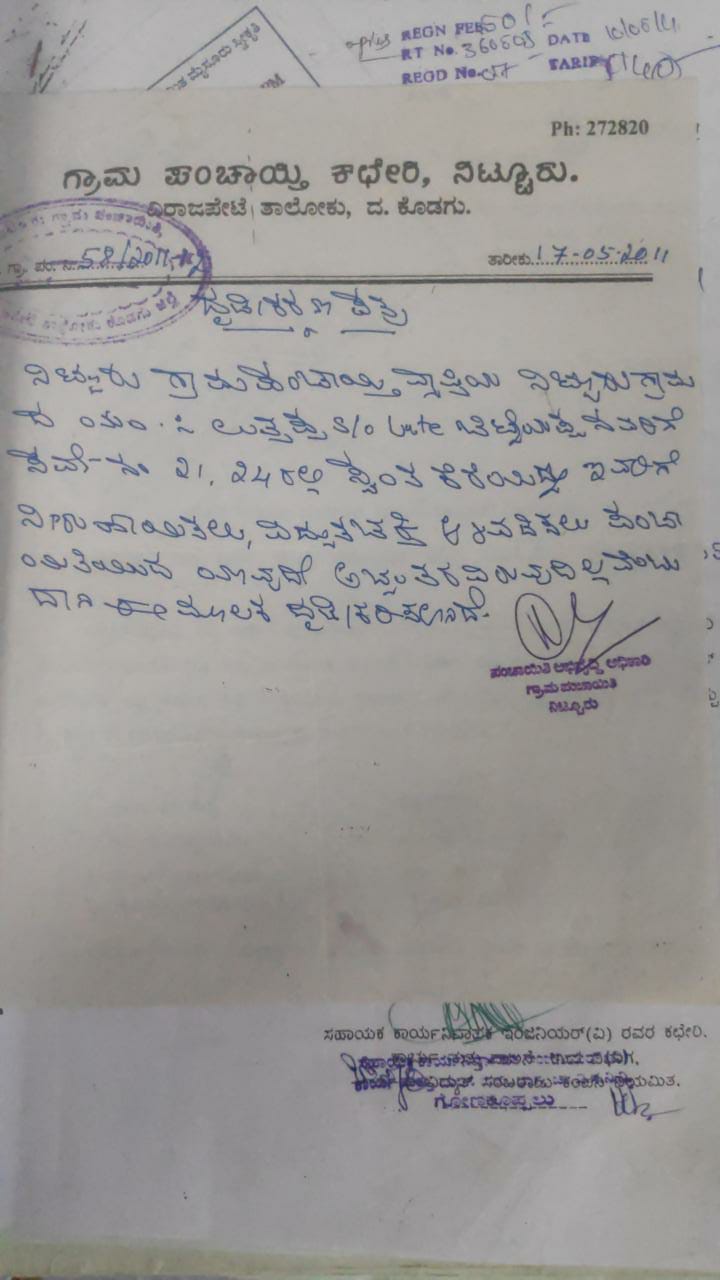 REGN FEE 50/-
RT No. 360508 DATE 10/06/11
REGD No. 07 TARIF
Ph: 272820
ಗ್ರಾಮ ಪಂಚಾಯ್ತಿ ಕಛೇರಿ, ನಿಟ್ಟೂರು.
ವಿರಾಜಪೇಟೆ ತಾಲೋಕು, ದ. ಕೊಡಗು.
ಗ್ರಾ. ಪಂ. ಸಂ. 58/2011-12 ತಾರೀಕು 17-05-2011
ದೃಢೀಕರಣ ಪತ್ರ
ನಿಟ್ಟೂರು ಗ್ರಾಮ ಪಂಚಾಯ್ತಿ ವ್ಯಾಪ್ತಿಯ ನಿಟ್ಟೂರು ಗ್ರಾಮ
ದ ಯಂ. ಸಿ S/o Late ರವರಿಗೆ
ಸರ್ವೆ ನಂ 21, 24 ರಲ್ಲಿ ಸ್ವಂತ ಕೆರೆಯಿದ್ದು ಇವರಿಗೆ
ನೀರು ಹಾಯಿಸಲು, ವಿದ್ಯುತಚಕ್ತಿ ಅಳವಡಿಸಲು ಪಂಚಾ
ಯಿತಿಯಿಂದ ಯಾವುದೇ ಅಭ್ಯಂತರವಿರುವುದಿಲ್ಲವೆಂಬು
ದಾಗಿ ಈ ಮೂಲಕ ದೃಢೀಕರಿಸಲಾಗಿದೆ.
ಪಂಚಾಯಿತಿ ಅಭಿವೃದ್ಧಿ ಅಧಿಕಾರಿ
ಗ್ರಾಮ ಪಂಚಾಯಿತಿ
ನಿಟ್ಟೂರು
ಸಹಾಯಕ ಕಾರ್ಯನಿರ್ವಾಹಕ ಇಂಜಿನಿಯರ್(ವಿ) ರವರ ಕಛೇರಿ.
ವಿದ್ಯುತ್ ಸರಬರಾಜು ಕಂಪನಿ ನಿಯಮಿತ.
ಗೋಣಿಕೊಪ್ಪಲು